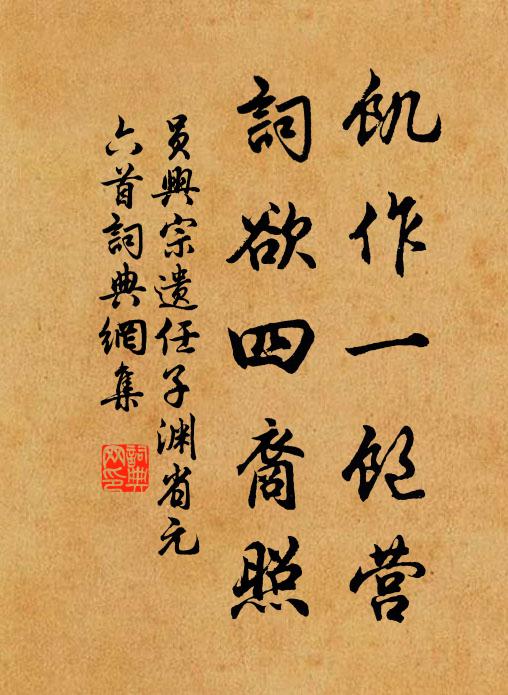 飢作一飽營
詞欲四裔照
员興宗遗任子渊省元
六首詞典網集
詞典
网印